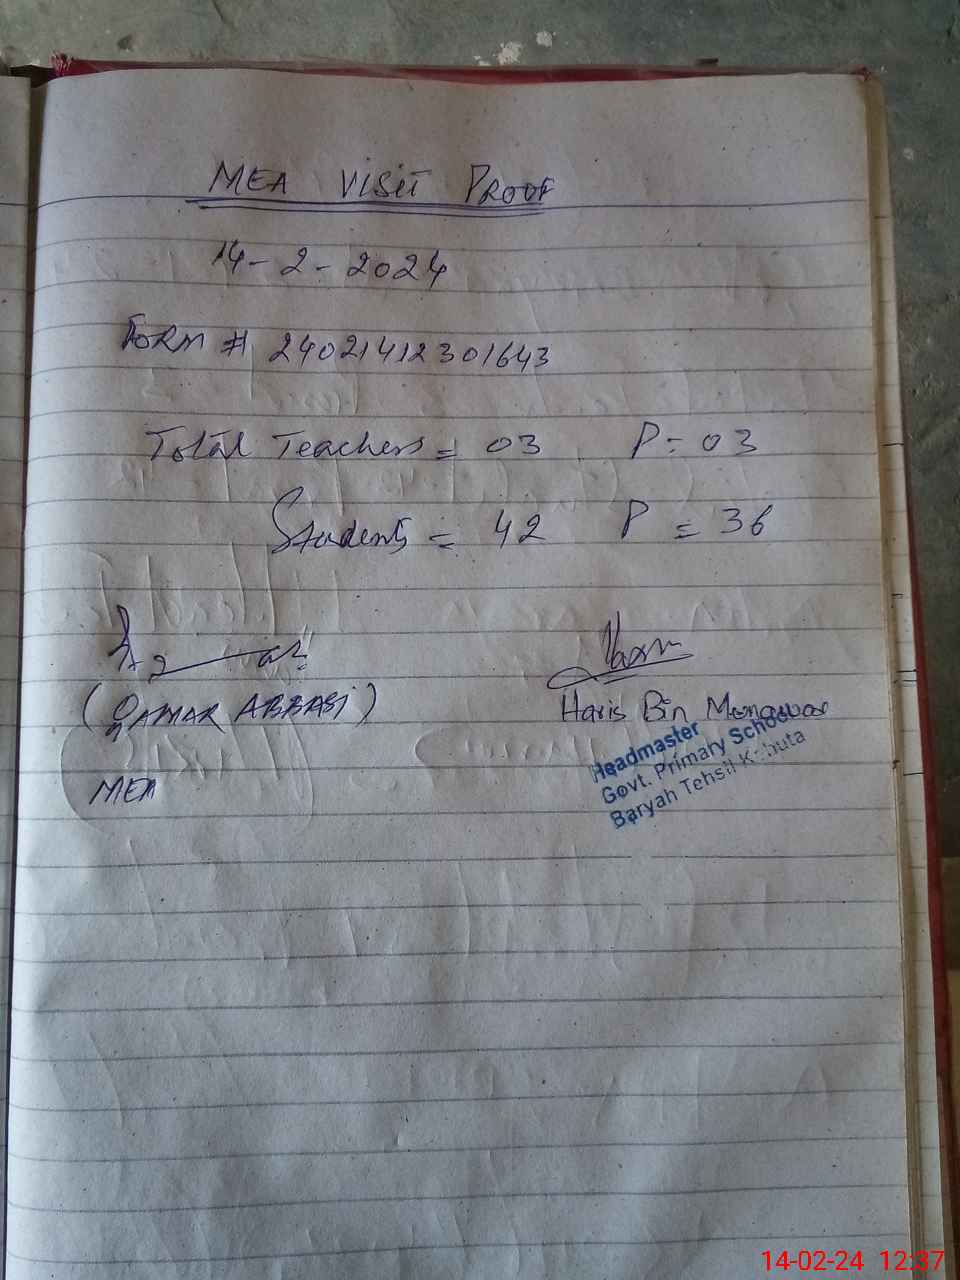 MEA VISIT PROOF
14-2-2024
FORM # 24021412301643
Total Teachers = 03 P = 03
Students = 42 P = 36
(QAMAR ABBASI) Haris Bin Monawar
MEA
Headmaster
Govt. Primary School
Baryah Tehsil Kahuta
14-02-24 12:37